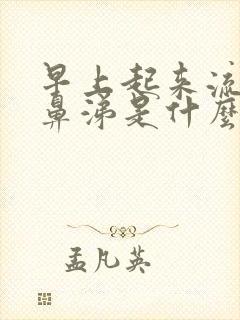 早上起来流
鼻涕是什麼
孟凡英